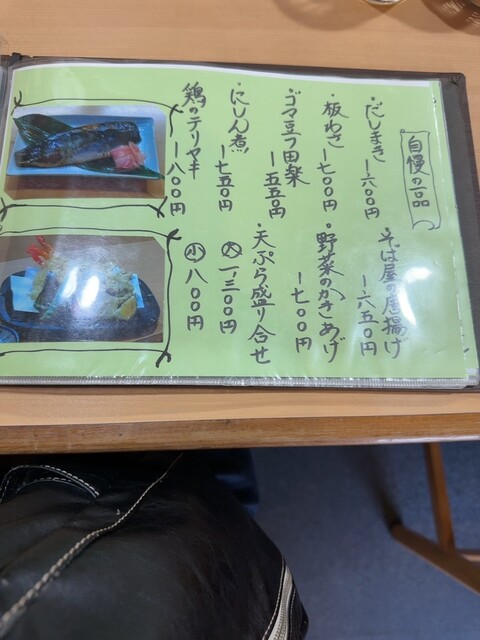 自慢の一品
・だしまき ー六〇〇円
・板わさ ー七〇〇円
・ゴマ豆フ田楽 ー五五〇円
・にしん煮 ー七五〇円
鶏のテリヤキ ー八〇〇円
・そば屋の唐揚げ ー六五〇円
・野菜のかきあげ ー七〇〇円
・天ぷら盛り合せ
大 一、三〇〇円
小 八〇〇円